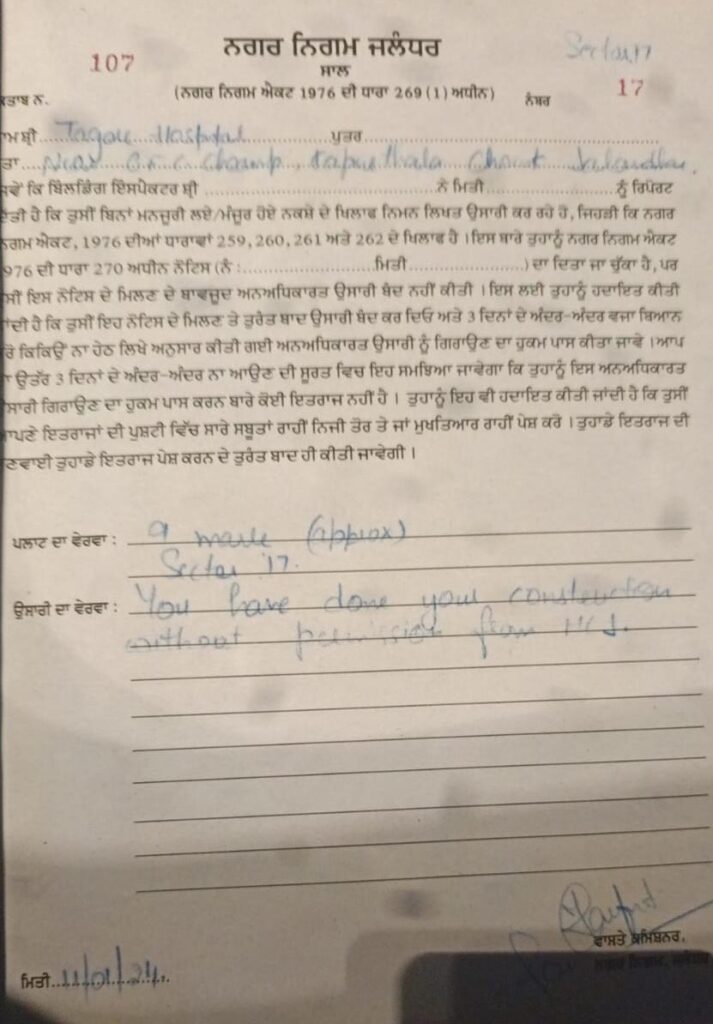 ਨਗਰ ਨਿਗਮ ਜਲੰਧਰ
Sector 17
107
ਸਾਲ
17
(ਨਗਰ ਨਿਗਮ ਐਕਟ 1976 ਦੀ ਧਾਰਾ 269 (1) ਅਧੀਨ)
ਤਾਬ ਨ.
ਨੰਬਰ
ਾਮ ਸ਼੍ਰੀ Tagore Hospital ਪੁਤਰ
ਤਾ Near Chowk Jalandhar
ਜਵੇਂ ਕਿ ਬਿਲਡਿੰਗ ਇੰਸਪੈਕਟਰ ਸ਼੍ਰੀ ਨੇ ਮਿਤੀ ਨੂੰ ਰਿਪੋਰਟ
ਤੀ ਹੈ ਕਿ ਤੁਸੀਂ ਬਿਨਾਂ ਮਨਜੂਰੀ ਲਏ/ਮੰਜੂਰ ਹੋਏ ਨਕਸ਼ੇ ਦੇ ਖਿਲਾਫ ਨਿਮਨ ਲਿਖਤ ਉਸਾਰੀ ਕਰ ਰਹੇ ਹੋ, ਜਿਹੜੀ ਕਿ ਨਗਰ
ਨਗਮ ਐਕਟ, 1976 ਦੀਆਂ ਧਾਰਾਵਾਂ 259, 260, 261 ਅਤੇ 262 ਦੇ ਖਿਲਾਫ ਹੈ । ਇਸ ਬਾਰੇ ਤੁਹਾਨੂੰ ਨਗਰ ਨਿਗਮ ਐਕਟ
976 ਦੀ ਧਾਰਾ 270 ਅਧੀਨ ਨੋਟਿਸ (ਨੰ: ਮਿਤੀ ) ਦਾ ਦਿਤਾ ਜਾ ਚੁੱਕਾ ਹੈ, ਪਰ
ਸੀਂ ਇਸ ਨੋਟਿਸ ਦੇ ਮਿਲਣ ਦੇ ਬਾਵਜੂਦ ਅਨਅਧਿਕਾਰਤ ਉਸਾਰੀ ਬੰਦ ਨਹੀਂ ਕੀਤੀ । ਇਸ ਲਈ ਤੁਹਾਨੂੰ ਹਦਾਇਤ ਕੀਤੀ
ਾਂਦੀ ਹੈ ਕਿ ਤੁਸੀਂ ਇਹ ਨੋਟਿਸ ਦੇ ਮਿਲਣ ਤੇ ਤੁਰੰਤ ਬਾਦ ਉਸਾਰੀ ਬੰਦ ਕਰ ਦਿਓ ਅਤੇ 3 ਦਿਨਾਂ ਦੇ ਅੰਦਰ-ਅੰਦਰ ਵਜਾ ਬਿਆਨ
ਰੋ ਕਿਕਿਉਂ ਨਾ ਹੇਠ ਲਿਖੇ ਅਨੁਸਾਰ ਕੀਤੀ ਗਈ ਅਨਅਧਿਕਾਰਤ ਉਸਾਰੀ ਨੂੰ ਗਿਰਾਉਣ ਦਾ ਹੁਕਮ ਪਾਸ ਕੀਤਾ ਜਾਵੇ । ਆਪ
ਾ ਉਤੱਰ 3 ਦਿਨਾਂ ਦੇ ਅੰਦਰ-ਅੰਦਰ ਨਾ ਆਉਣ ਦੀ ਸੂਰਤ ਵਿਚ ਇਹ ਸਮਝਿਆ ਜਾਵੇਗਾ ਕਿ ਤੁਹਾਨੂੰ ਇਸ ਅਨਅਧਿਕਾਰਤ
ਸਾਰੀ ਗਿਰਾਉਣ ਦਾ ਹੁਕਮ ਪਾਸ ਕਰਨ ਬਾਰੇ ਕੋਈ ਇਤਰਾਜ ਨਹੀਂ ਹੈ । ਤੁਹਾਨੂੰ ਇਹ ਵੀ ਹਦਾਇਤ ਕੀਤੀ ਜਾਂਦੀ ਹੈ ਕਿ ਤੁਸੀਂ
ਾਪਣੇ ਇਤਰਾਜਾਂ ਦੀ ਪੁਸ਼ਟੀ ਵਿੱਚ ਸਾਰੇ ਸਬੂਤਾਂ ਰਾਹੀਂ ਨਿਜੀ ਤੋਰ ਤੇ ਜਾਂ ਮੁਖਤਿਆਰ ਰਾਹੀਂ ਪੇਸ਼ ਕਰੋ । ਤੁਹਾਡੇ ਇਤਰਾਜ ਦੀ
ਣਵਾਈ ਤੁਹਾਡੇ ਇਤਰਾਜ ਪੇਸ਼ ਕਰਨ ਦੇ ਤੁਰੰਤ ਬਾਦ ਹੀ ਕੀਤੀ ਜਾਵੇਗੀ ।
ਪਲਾਟ ਦਾ ਵੇਰਵਾ : 9 marle (approx)
Sector 17.
ਉਸਾਰੀ ਦਾ ਵੇਰਵਾ : You have done your construction
without permission from MCJ.
ਵਾਸਤੇ ਕਮਿਸ਼ਨਰ,
ਨਗਰ ਨਿਗਮ, ਜਲੰਧਰ
ਮਿਤੀ 11/01/24